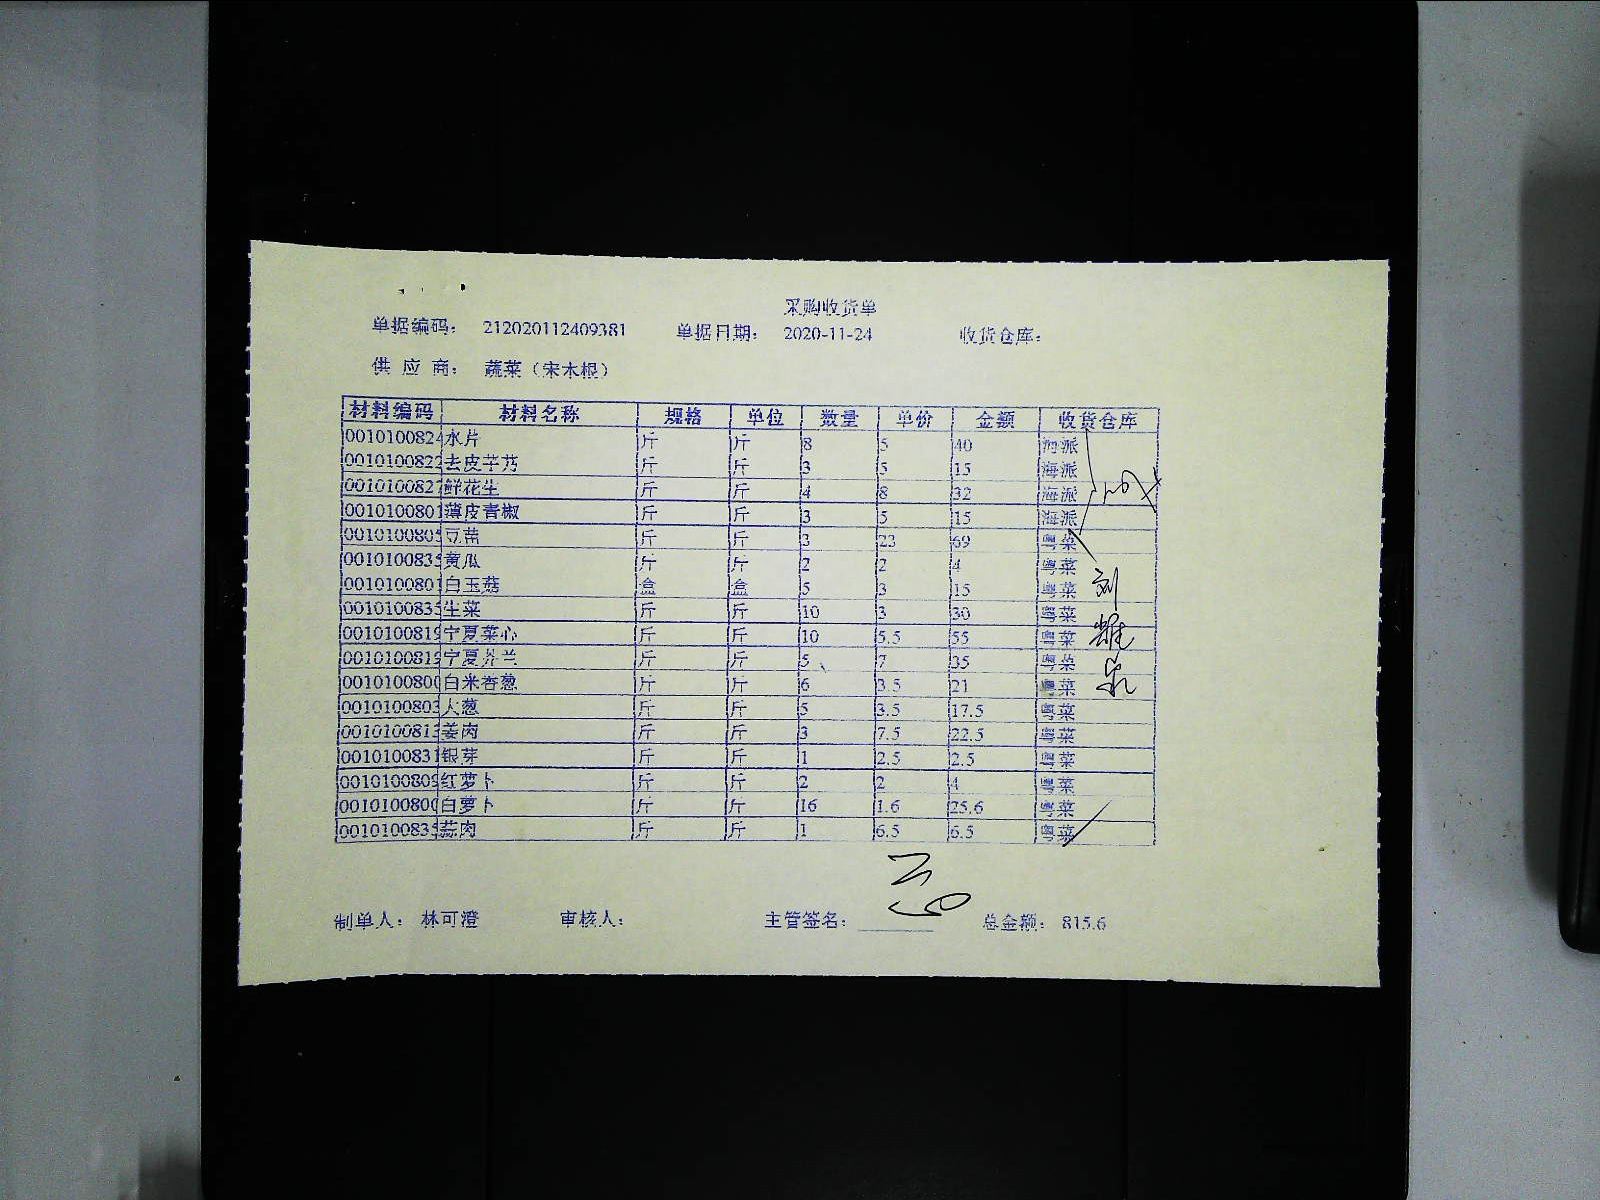 采购收货单
单据编码： 212020112409381 单据日期： 2020-11-24 收货仓库：
供 应 商： 蔬菜（宋木根）
材料编码 材料名称 规格 单位 数量 单价 金额 收货仓库
0010100824 水片 斤 斤 8 5 40 海派
0010100822 去皮芋艿 斤 斤 3 5 15 海派
0010100827 鲜花生 斤 斤 4 8 32 海派
0010100801 薄皮青椒 斤 斤 3 5 15 海派
0010100805 豆苗 斤 斤 3 23 69 粤菜
0010100835 黄瓜 斤 斤 2 2 4 粤菜
0010100801 白玉菇 盒 盒 5 3 15 粤菜
0010100835 生菜 斤 斤 10 3 30 粤菜
0010100819 宁夏菜心 斤 斤 10 5.5 55 粤菜
0010100819 宁夏芥兰 斤 斤 5 7 35 粤菜
0010100800 白米香葱 斤 斤 6 3.5 21 粤菜
0010100803 大葱 斤 斤 5 3.5 17.5 粤菜
0010100815 姜肉 斤 斤 3 7.5 22.5 粤菜
0010100831 银芽 斤 斤 1 2.5 2.5 粤菜
0010100809 红萝卜 斤 斤 2 2 4 粤菜
0010100800 白萝卜 斤 斤 16 1.6 25.6 粤菜
0010100835 蒜肉 斤 斤 1 6.5 6.5 粤菜
刘
制单人： 林可澄 审核人： 主管签名： 总金额： 815.6